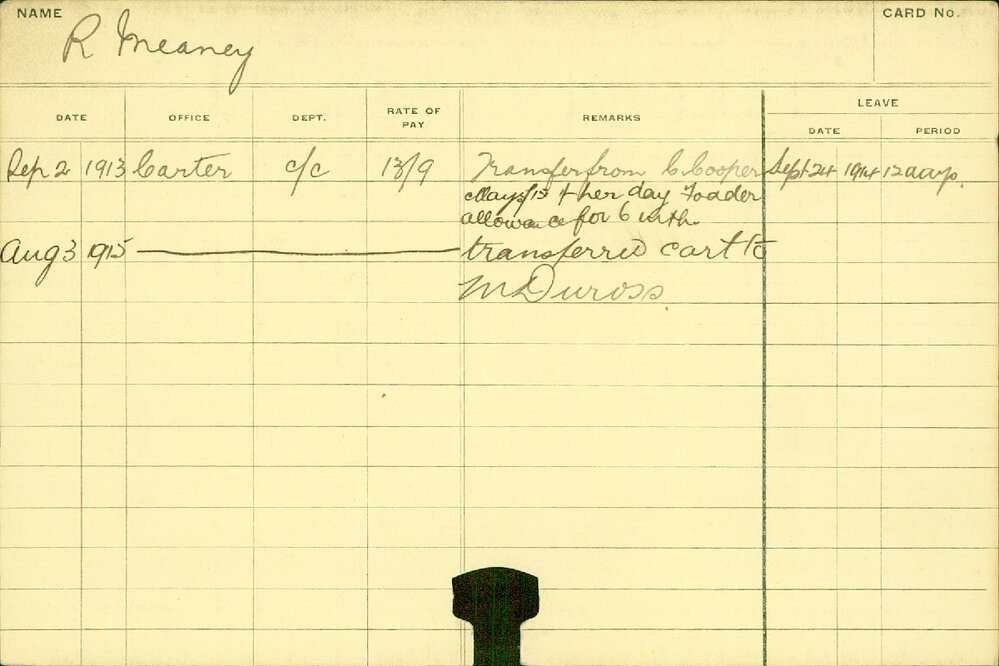 NAME
CARD No.
R Meaney
DATE OFFICE DEPT. RATE OF PAY REMARKS LEAVE
DATE PERIOD
Sep 2 1913 Carter c/c 13/9 Transfer from C Cooper Sept 24 1914 12 days.
May/15 1/- per day Fodder
allowance for 6 mth
Aug 3 1915 transferred cart to
M Duross